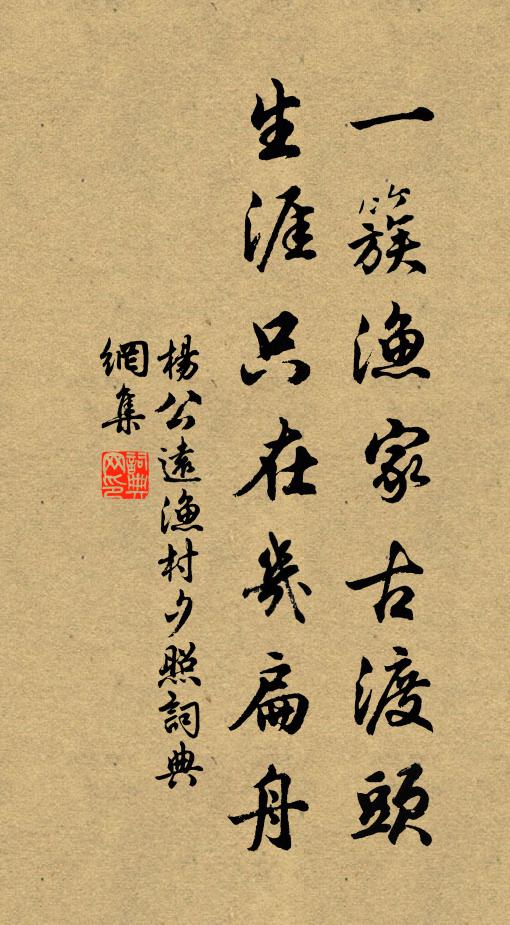 一簇漁家古渡頭
生涯只在幾扁舟
楊公遠漁村夕照詞典
網集
詞典
网印